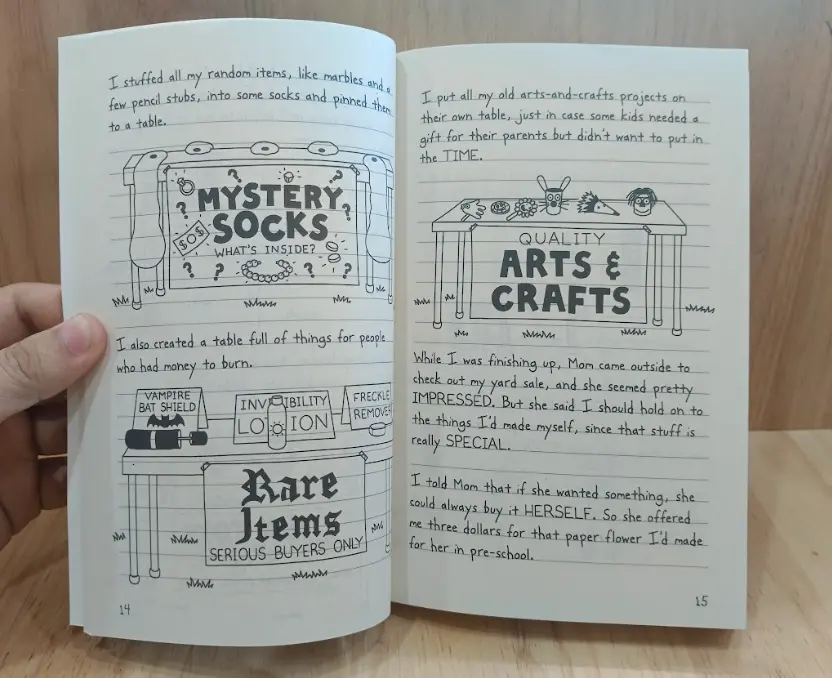 I stuffed all my random items, like marbles and a
few pencil stubs, into some socks and pinned them
to a table.
MYSTERY
SOCKS
$0$
WHAT'S INSIDE?
I also created a table full of things for people
who had money to burn.
VAMPIRE
BAT SHIELD
INV IBILITY
LO ION
FRECKLE
REMOVER
Rare
Items
SERIOUS BUYERS ONLY
14
I put all my old arts-and-crafts projects on
their own table, just in case some kids needed a
gift for their parents but didn't want to put in
the TIME.
QUALITY
ARTS &
CRAFTS
While I was finishing up, Mom came outside to
check out my yard sale, and she seemed pretty
IMPRESSED. But she said I should hold on to
the things I'd made myself, since that stuff is
really SPECIAL.
I told Mom that if she wanted something, she
could always buy it HERSELF. So she offered
me three dollars for that paper flower I'd made
for her in pre-school.
15